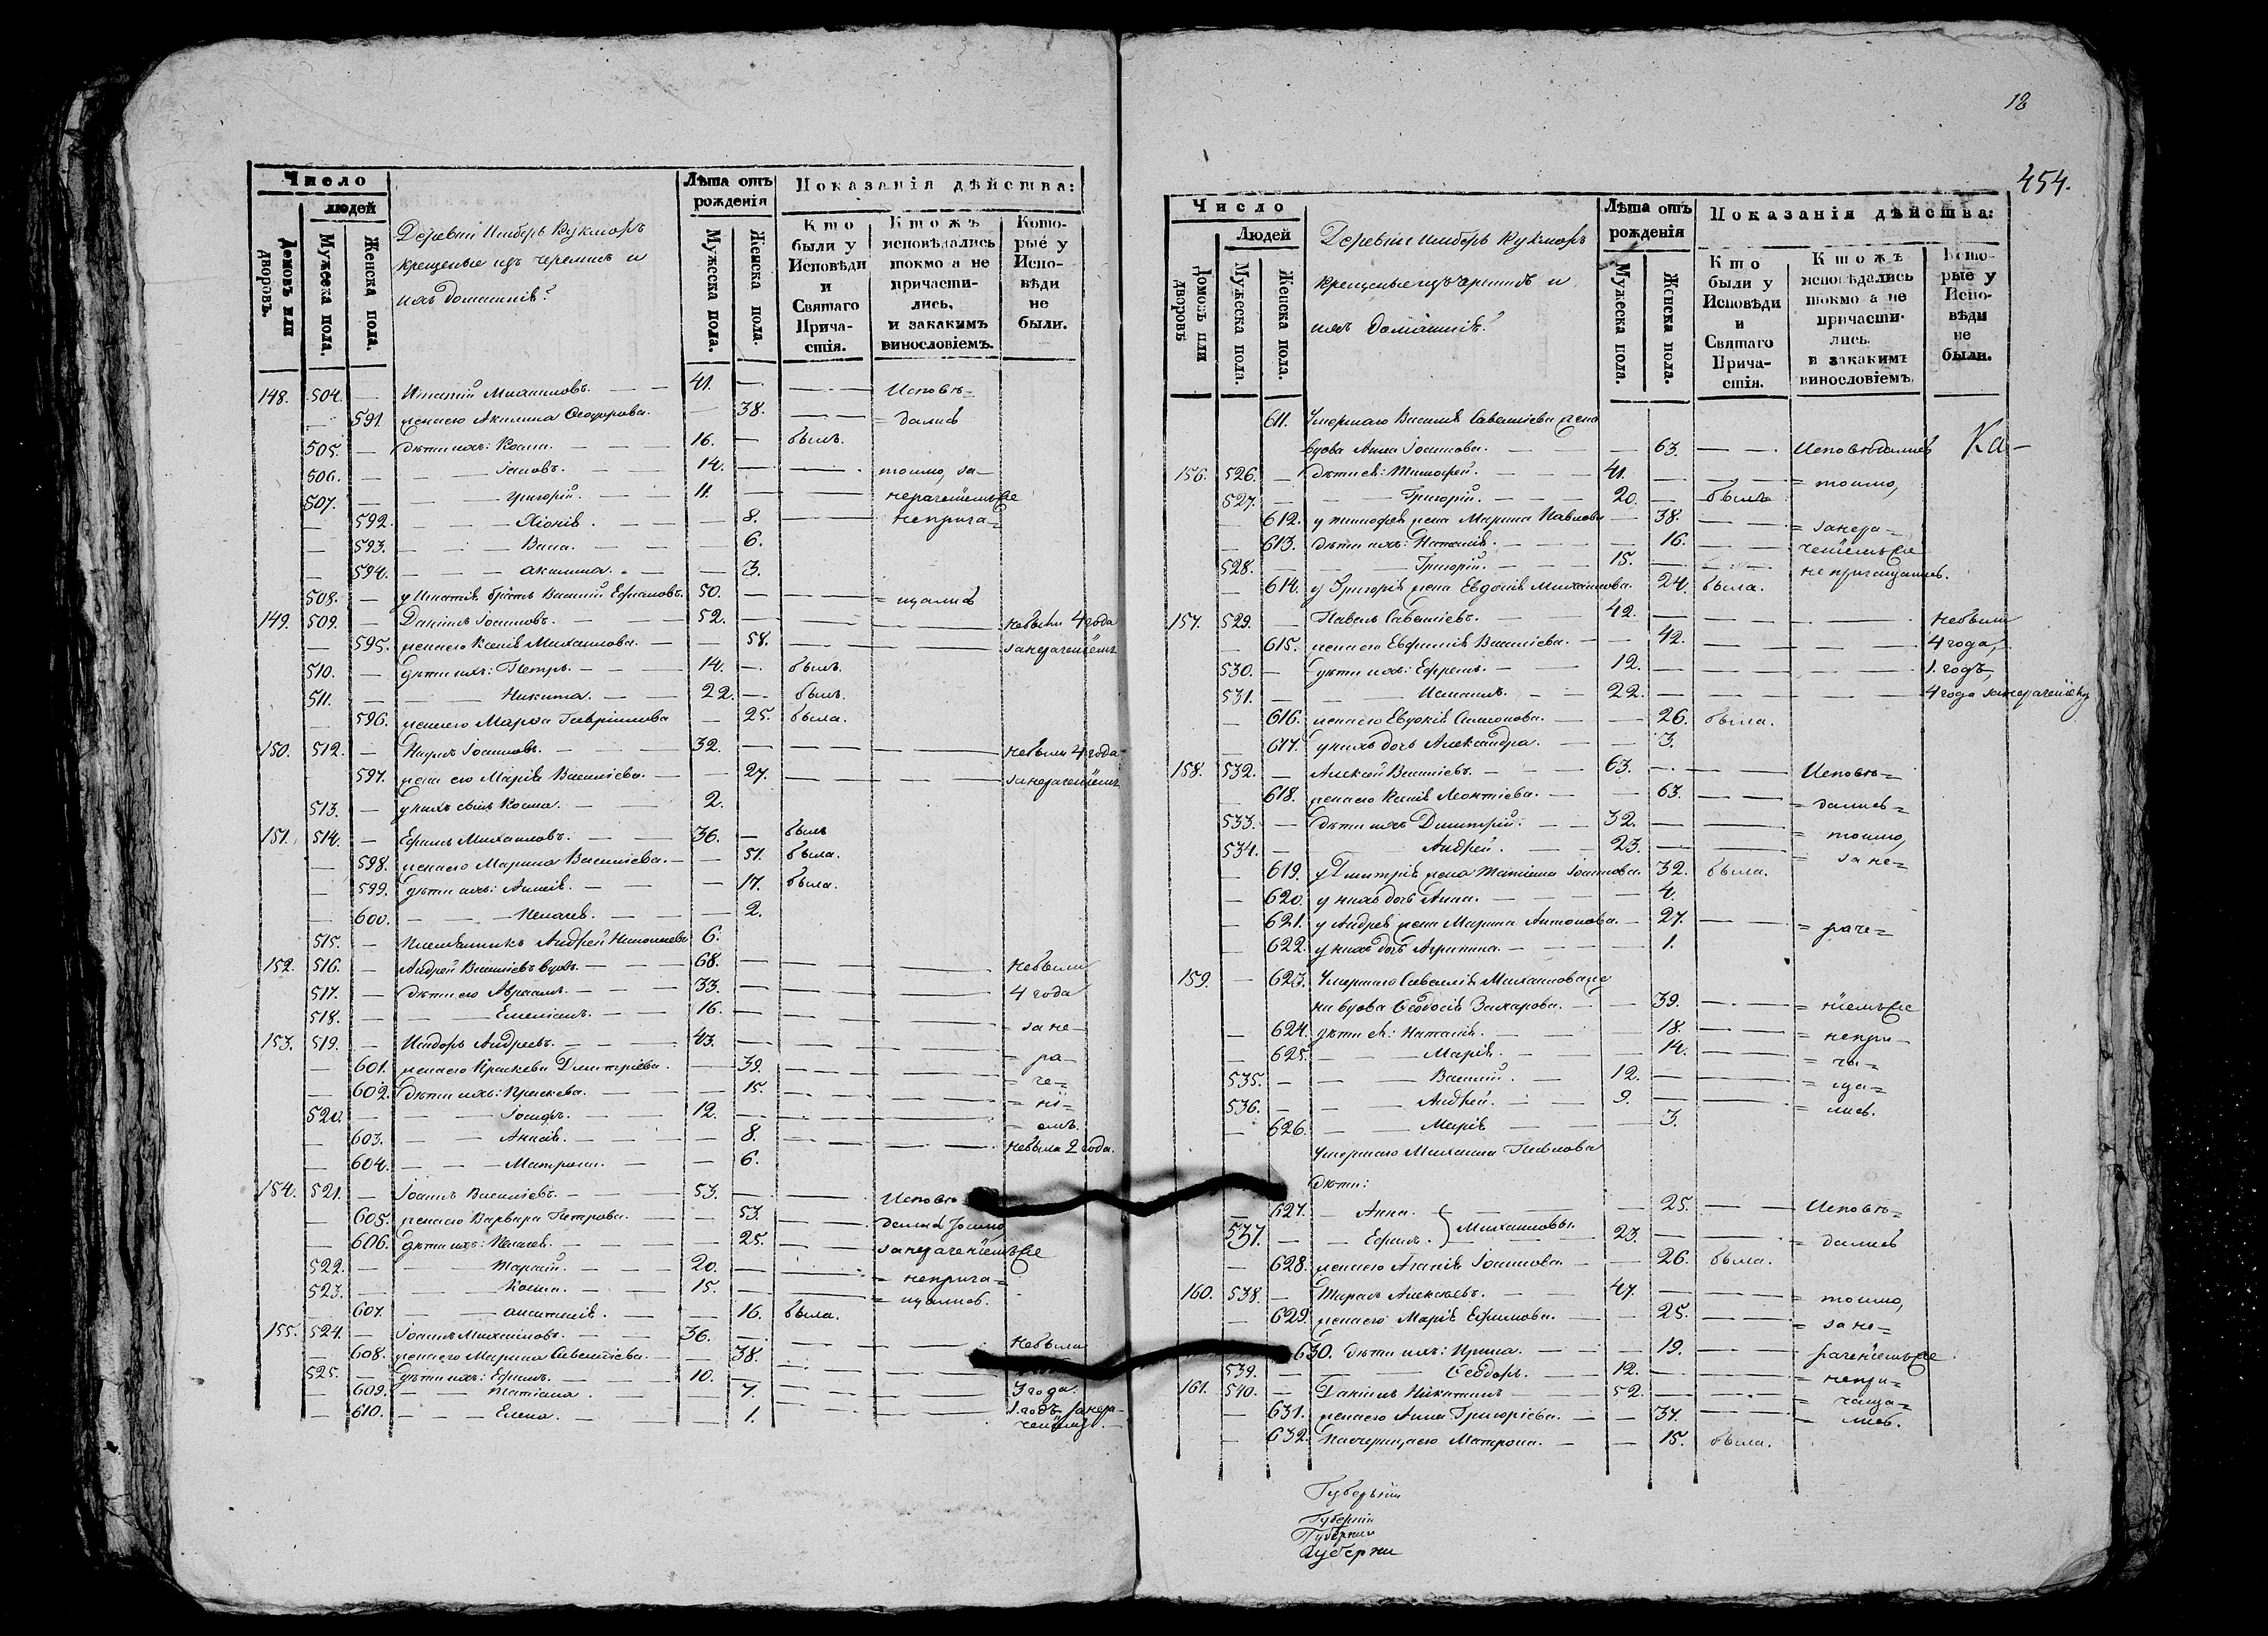 Число
людей
Домовъ или дворовъ.
Мужеска пола.
Женска пола.
Деревни Имберь Кукморъ
крещеные изъ черемисъ и
ихъ домашнiе
Лѣта отъ рожденія
Мужеска пола.
Женска пола.
Показанія дѣйства:
Кто были у Исповѣди и Святаго Причастія.
Ктожъ исповѣдались токмо а не причастились, и закакимъ винословіемъ.
Которые у Исповѣди не были.
148. 504. — Игнатій Михаиловъ. — — 41. — — — Исповѣ=
— 591. жена его Акилина Ѳеодорова. — 38. — — = дались
505. — дѣти ихъ: Косма. — — 16. — былъ.
506. — — — 14. — — — токмо, за—
507. — — — Григорій. — — 11. — — — нерачениемъ же
— 592. — — — Хіонія. — — 8. — — неприча=
— 593. — — — — — 6.
— 594. — — — Акилина. — — 3.
508. — у Игнатія братъ Василий 50. — — — = щались
149. 509. — Даніилъ Іоанновъ. — 52. — — — — небыли 4 года
— 595. жена его Ксенія Михаилова. — — 58. — — — занерачениемъ
510. — дѣти ихъ: Петръ. — — 14. — былъ.
511. — — — Никита. — — 22. — былъ.
— 596. жена его Марѳа Гавріилова — 25. была.
150. 512. — Іоанновъ. — 32. — — — — небыли 4 года
597. жена его Марія Василіева. — — 27. — — — занерачениемъ
513. — у нихъ сынъ Косма. — 2.
151. 514. — Ефимъ Михаиловъ. — — 36. — былъ
— 598. жена его Марина Василіева. — — 51. была.
— 599. дѣти ихъ: — — 17. была.
— 600. — — — Пелагея. — — 2.
515. — Племянникъ Андрей 6.
152. 516. — Андрей Василіевъ вдовъ. — — 68. — — — — небыли
517. — дѣти его Авраамъ. — — 33. — — — — 4 года
518. — — — Емеліанъ. — — 16. — — — — = за не—
153. 519. — Исидоръ Андреевъ. — — 43. — — — — = ра—
— 601. жена его Праскева Дмитріева. — 39. — — — = че=
— 602. дѣти ихъ: Праскева. — — 15. — — — = ні=
520. — — — — — 12. — — — — = емъ.
— 603. — — Аннa. — — 8. — — — небыла 2 года.
— 604. — — — Матрона. — — 6.
154. 521. — Іоаннъ Василіевъ. — 53. — — — Исповѣ
— 605. жена его Варвара Петрова. — — 53. — — дались токмо,
— 606. дѣти ихъ: Пелагея. — — 25. — — занерачениемъ же
522. — — — Тарасій. — — 20. — — — = неприча=
523. — — — Косма. — — 15. — — — = щались.
— 607. — — Анастасія. — — 16. была.
155. 524. — Іоаннъ Михаиловъ. — 36. — — — — небыли
— 608. жена его Марина Савеліева. — 38. — — —
525. — дѣти ихъ: Ефимъ. — — 10. — — — —
609. — — Татіана. — — 7. — — — 3 года.
— 610. — — Елена. — — 1. — — — 1. годъ занера-
чениемъ.
18
454.
Число
Людей
Домовъ или дворовъ
Мужеска пола.
Женска пола.
Деревни Имберь Кукморъ
крещеные изъ черемисъ и
ихъ домашнiе
Лѣта отъ рожденія
Мужеска пола.
Женска пола.
Показанія дѣйства:
Кто были у Исповѣди и Святаго Причастія.
Ктожъ исповѣдались токмо а не причастились. и закакимъ винословіемъ.
Которые у Исповѣди не были.
611. Умершаго Василія Савеліева жена
вдова Анна Іоаннова. — — 63. — — Исповѣдались Ка—
156. 526. — дѣти ея: Тимофей. — 41. — — — = токмо,
527. — — Григорій. — 20. — былъ
— 612. у Тимофея жена Марина Павлова — 38. — — = занера—
— 613. дѣти ихъ: Наталія. — — 16. — — чениемъ же
528. — — Григорій. — 15. — — — непричащались.
— 614. у Григорія жена Евдокія Михаилова. 24. была.
157. 529. — Павелъ Савеліевъ. — 42. — — — — небыли
— 615. жена его Евфимія Василіева. — — 42. — — — 4 года,
530. — дѣти ихъ: Ефремъ. — 12. — — — — 1. годъ,
531. — — — 22. — — — — 4 года занерачениемъ
— 616. жена его Евдокія Симонова. — — 26. была.
— 617. у нихъ дочь Александра. — — 3.
158. 532. — Алексей Василіевъ. — 63. — — — Исповѣ=
— 618. жена его Ксенія Леонтіева. — — 63. — — = дались=
533. — дѣти ихъ Димитрій. — 32. — — — = токмо,
534. — — Андрей. — 23. — — — = за не=
— 619. у Дмитрія жена Татіана Іоаннова. 32. была.
— 620. у нихъ дочь Анна. — — 4.
— 621. у Андрея жена Марина Антонова. — 27. — — = раче=
— 622. у нихъ дочь Агрипина. — — 1.
159. — 623. Умершаго Савелія Михаилова же
на вдова Ѳеодосія Захарова. — — 39. — — = ниемъ же
— 624. дѣти ея: Наталія. — — 18. — — = непри—
— 625. — — Марія. — — 14. — — = ча=
535. — — Василій. — 12. — — — = ща=
536. — — Андрей. — 9. — — — = лись.
— 626. — — Марія — — 3.
Умершаго Михаила Павлова
дѣти:
— 627. — Анна. — — 25. — — Исповѣ=
537. — — Ефимъ. } Михаиловы. 23. — — — = дались
— 628. жена его Агапія Іоаннова. — — 26. была.
160. 538. — Тарасъ Алексѣевъ. — 47. — — — = токмо,
— 629. жена его Марія Ефимова. — — 25. — — = за не=
— 630. дѣти ихъ: Ирина. — — 19. — — рачениемъ же
539. — — Ѳеодоръ. — 12. — — — = непри=
161. 540. — Даніилъ — 52. — — — = чаща=
— 631. жена его Анна Григоріева. — — 37. — — = лись.
— 632. Падчерица его Матрона. — — 15. была.
Губерніи
Губерніи
Губерніи
Губерни